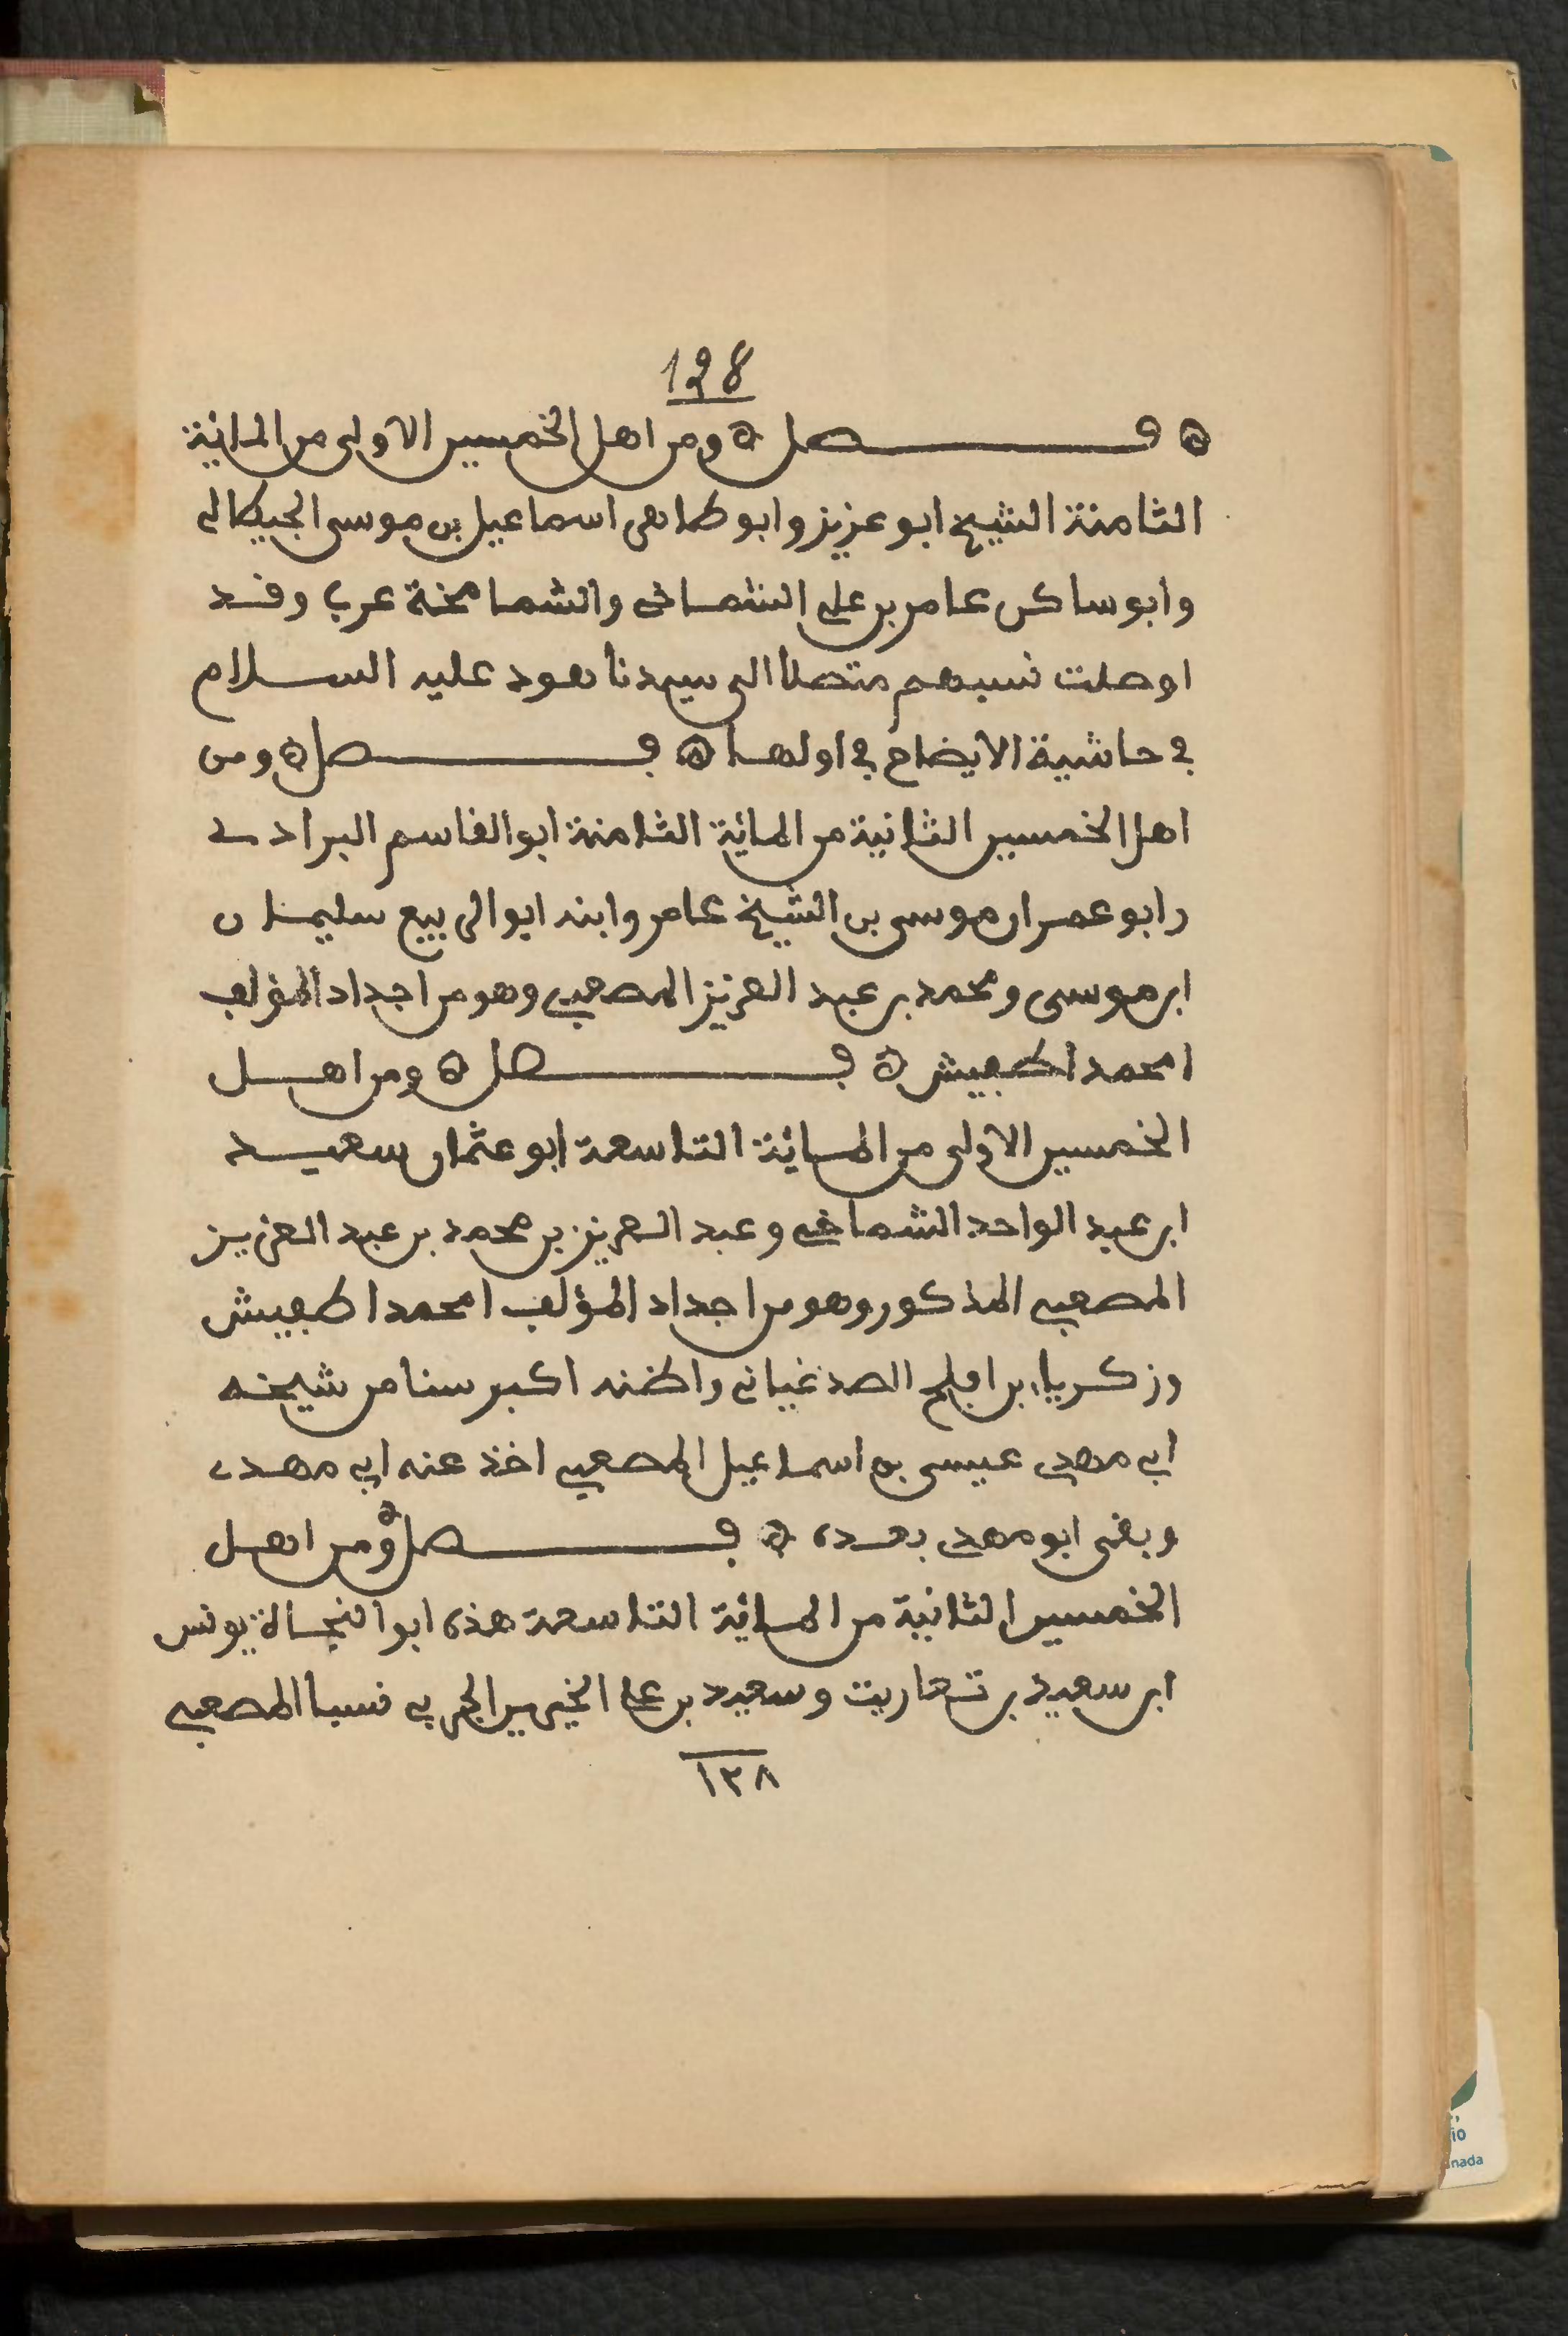 128
فصل ومن اهل الخمسين الاولى من المائة
الثامنة الشيخ ابو عزيز وابو طاهر اسماعيل بن موسى الجيطالي
وابو ساكن عامر بن علي الشماخي والشماخة عرب وقد
اوصلت نسبهم متصلا الى سيدنا هود عليه السلام
في حاشية الايضاح في اولها فصل ومن
اهل الخمسين الثانية من المائة الثامنة ابو القاسم البرادي
وابو عمران موسى بن الشيخ عامر وابنه ابو الربيع سليمان
ابن موسى ومحمد بن عبد العزيز المصعبي وهو من اجداد المؤلف
امحمد اطفيش فصل ومن اهل
الخمسين الاولى من المائة التاسعة ابو عثمان سعيد
ابن عبد الواحد الشماخي وعبد العزيز بن محمد بن عبد العزيز
المصعبي المذكور وهو من اجداد المؤلف امحمد اطفيش
وزكرياء بن افلح الصدغياني واظنه اكبر سنا من شيخه
ابي مهدي عيسى بن اسماعيل المصعبي اخذ عنه ابي مهدي
وبقى ابو مهدي بعده فصل ومن اهل
الخمسين الثانية من المائة التاسعة هذه ابو النجاة يونس
ابن سعيد بن تعاريت وسعيد بن علي الخيري الجربي نسبا المصعبي
١٢٨